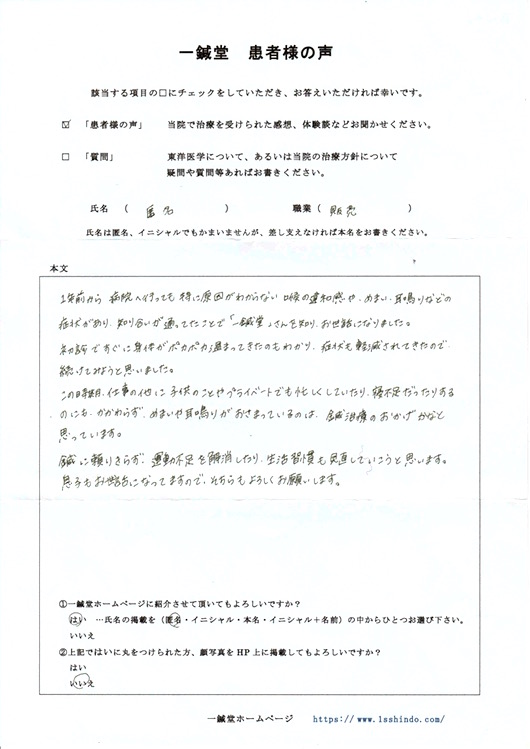 一鍼堂 患者様の声
該当する項目の□にチェックをしていただき、お答えいただければ幸いです。
☑ 「患者様の声」 当院で治療を受けられた感想、体験談などお聞かせください。
□ 「質問」 東洋医学について、あるいは当院の治療方針について
疑問や質問等あればお書きください。
氏名 ( 匿名 ) 職業 ( 販売 )
氏名は匿名、イニシャルでもかまいませんが、差し支えなければ本名をお書きください。
本文
1年前から 病院へ行っても 特に原因がわからない 喉の違和感や、めまい、耳鳴りなどの
症状があり、知り合いが通ってたことで「一鍼堂」さんを知り、お世話になりました。
初診ですぐに身体がポカポカ温まってきたのもわかり、症状も軽減されてきたので、
続けてみようと思いました。
この時期、仕事の他に 子供のことやプライベートでも忙しくしていたり、寝不足だったりする
のにも、かかわらず、めまいや耳鳴りがおさまっているのは、鍼治療のおかげかなと
思っています。
鍼に頼りきらず、運動不足を解消したり、生活習慣も見直していこうと思います。
息子もお世話になってますので、そちらもよろしくお願いします。
①一鍼堂ホームページに紹介させて頂いてもよろしいですか？
はい …氏名の掲載を（匿名・イニシャル・本名・イニシャル＋名前）の中からひとつお選び下さい。
いいえ
②上記ではいに丸をつけられた方、顔写真をHP上に掲載してもよろしいですか？
はい
いいえ
一鍼堂ホームページ https://www.1sshindo.com/